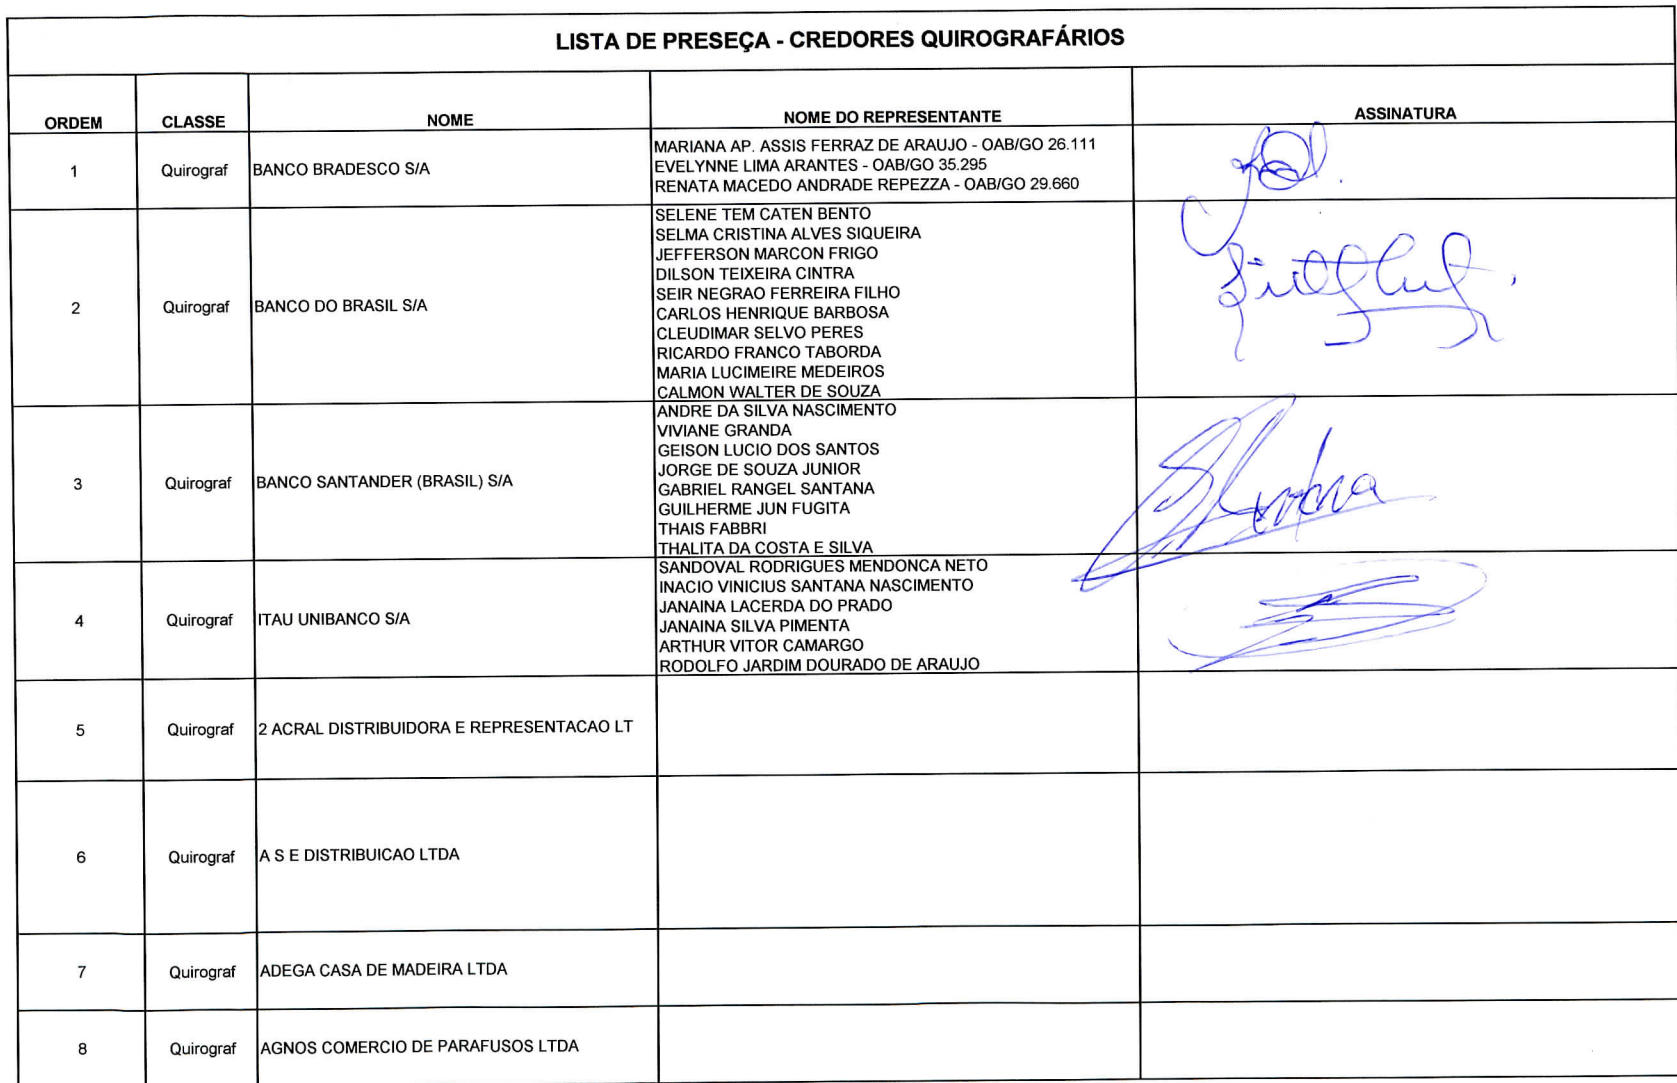 LISTA DE PRESEÇA - CREDORES QUIROGRAFÁRIOS
ORDEM CLASSE NOME NOME DO REPRESENTANTE ASSINATURA
1 Quirograf BANCO BRADESCO S/A
MARIANA AP. ASSIS FERRAZ DE ARAUJO - OAB/GO 26.111
EVELYNNE LIMA ARANTES - OAB/GO 35.295
RENATA MACEDO ANDRADE REPEZZA - OAB/GO 29.660
2 Quirograf BANCO DO BRASIL S/A
SELENE TEM CATEN BENTO
SELMA CRISTINA ALVES SIQUEIRA
JEFFERSON MARCON FRIGO
DILSON TEIXEIRA CINTRA
SEIR NEGRAO FERREIRA FILHO
CARLOS HENRIQUE BARBOSA
CLEUDIMAR SELVO PERES
RICARDO FRANCO TABORDA
MARIA LUCIMEIRE MEDEIROS
CALMON WALTER DE SOUZA
3 Quirograf BANCO SANTANDER (BRASIL) S/A
ANDRE DA SILVA NASCIMENTO
VIVIANE GRANDA
GEISON LUCIO DOS SANTOS
JORGE DE SOUZA JUNIOR
GABRIEL RANGEL SANTANA
GUILHERME JUN FUGITA
THAIS FABBRI
THALITA DA COSTA E SILVA
4 Quirograf ITAU UNIBANCO S/A
SANDOVAL RODRIGUES MENDONCA NETO
INACIO VINICIUS SANTANA NASCIMENTO
JANAINA LACERDA DO PRADO
JANAINA SILVA PIMENTA
ARTHUR VITOR CAMARGO
RODOLFO JARDIM DOURADO DE ARAUJO
5 Quirograf 2 ACRAL DISTRIBUIDORA E REPRESENTACAO LT
6 Quirograf A S E DISTRIBUICAO LTDA
7 Quirograf ADEGA CASA DE MADEIRA LTDA
8 Quirograf AGNOS COMERCIO DE PARAFUSOS LTDA